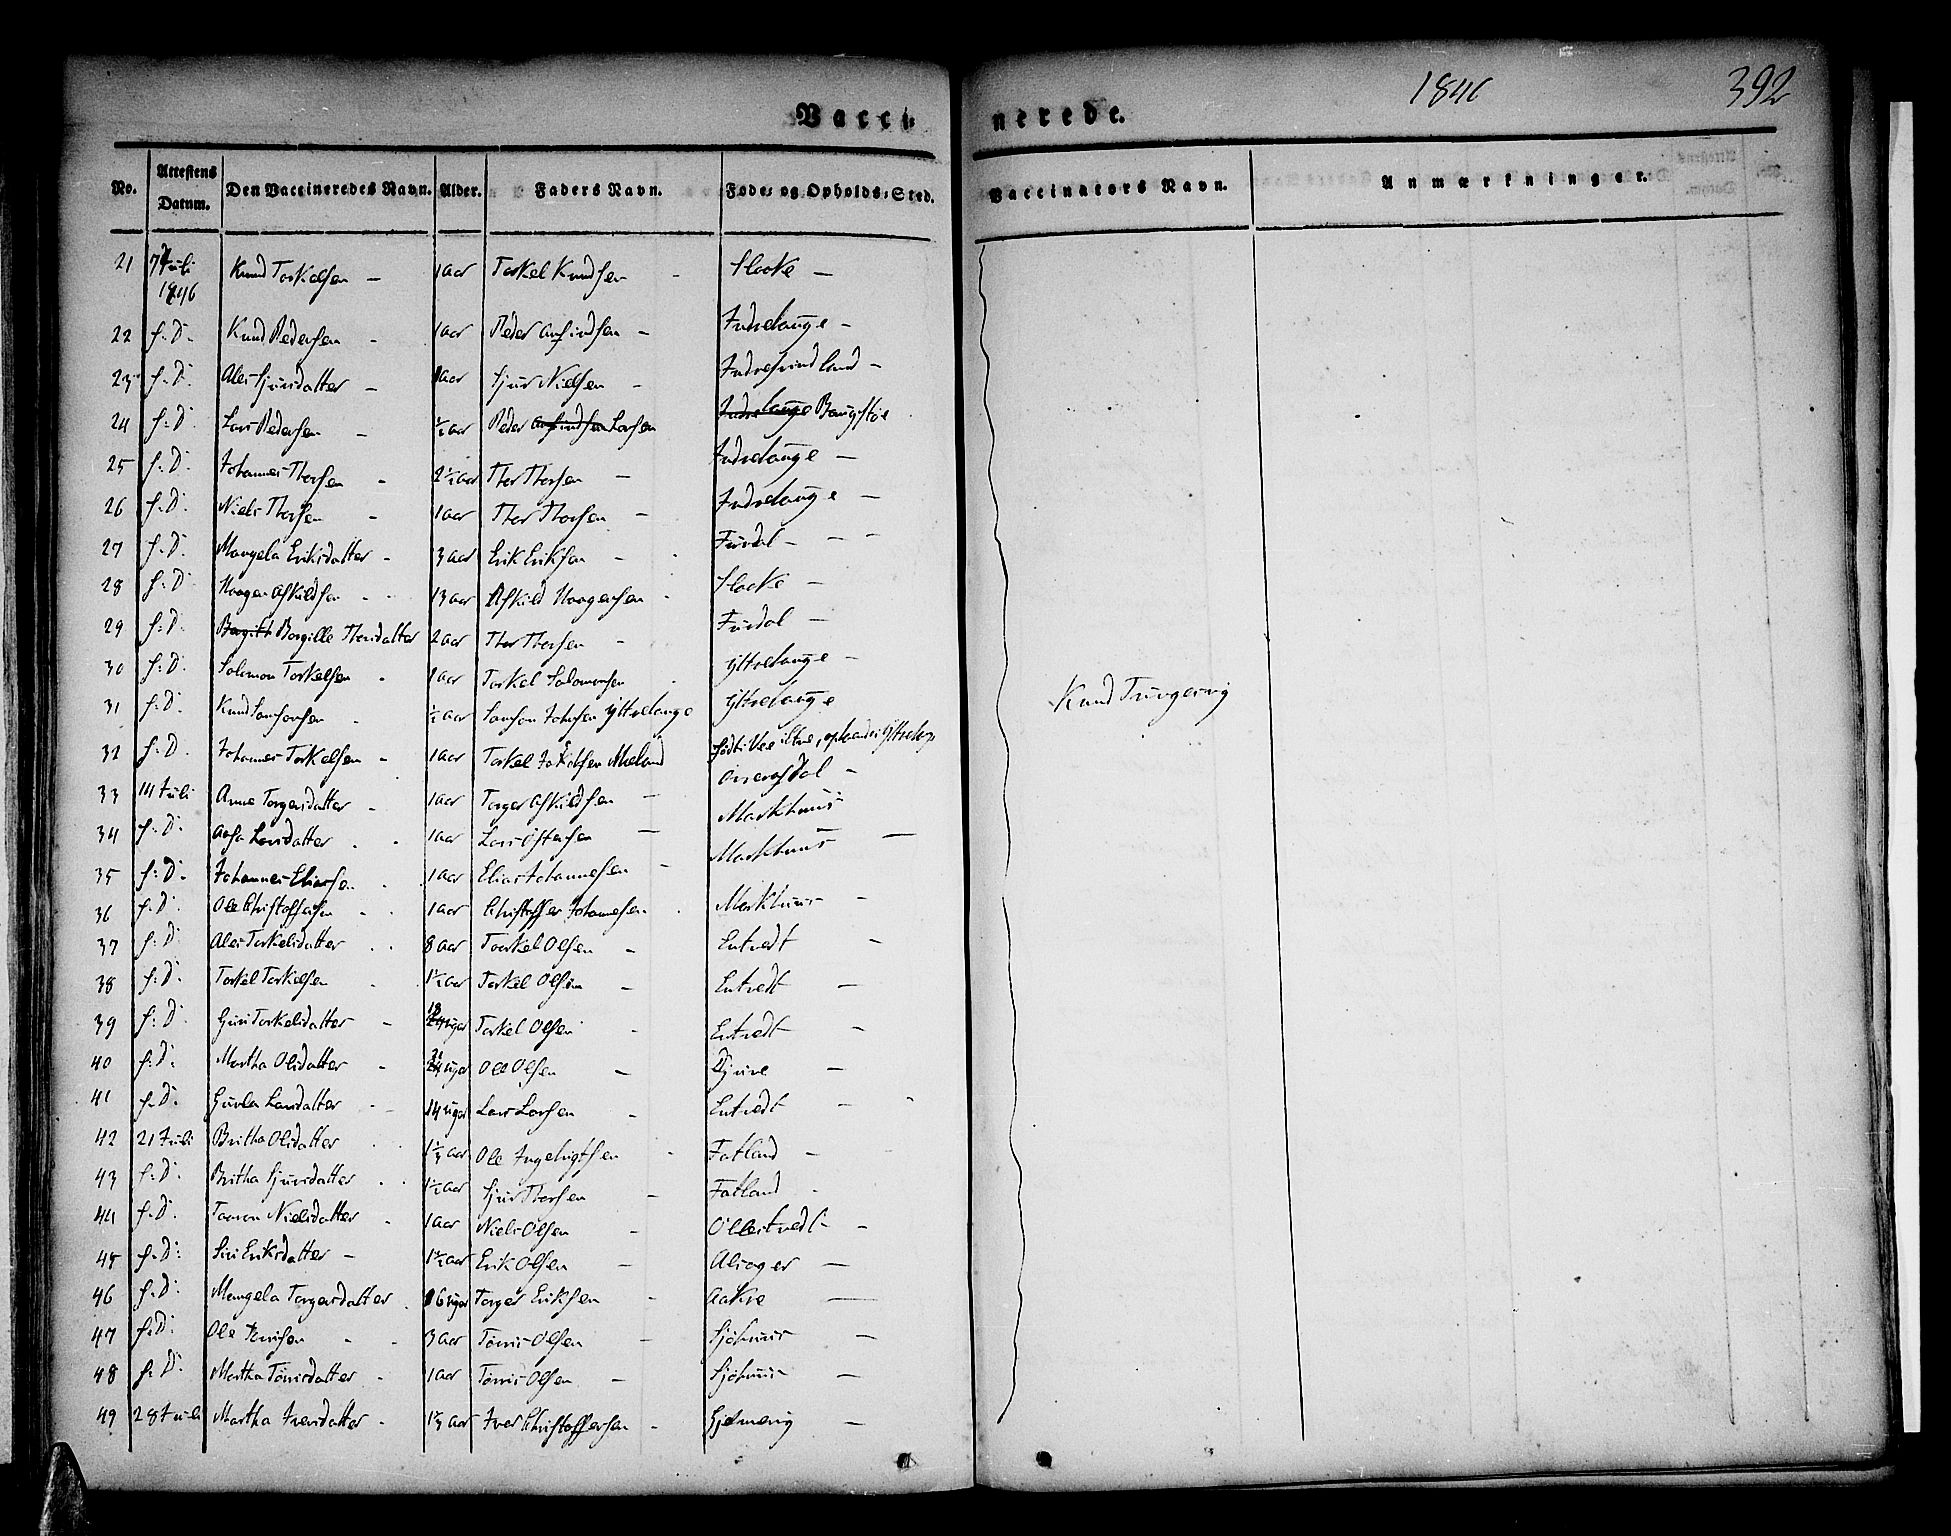 1846
392
Vacci-
nerede.
No. Attestens Datum. Den Vaccineredes Navn. Alder. Faders Navn. Føde- og Opholds-Sted. Vaccinators Navn. Anmærkninger.
21 7 Juli 1846 Knud Torkelsen - 1 aar Torkel Knudsen - Flaake -
22 f: D: Knud Pedersen - 1 aar Peder Anfindsen - Indrelange -
23 f: D: Ales Sjursdatter - 1 aar Sjur Nielsen - Indresundland -
24 f: D: Lars Pedersen - ½ aar Peder Anfindsen Larsen Indrelange Baugstøe
25 f: D: Johannes Thorsen - 2½ aar Thor Thorsen - Indrelange -
26 f: D: Niels Thorsen - 1 aar Thor Thorsen - Indrelange -
27 f: D: Mangela Eriksdatter - 3 aar Erik Eriksen - Furdal - - -
28 f: D: Haagen Afkildsen - 13 aar Afkild Haagensen - Flaake -
29 f: D: Bergitt Borgille Thorsdatter 2 aar Thor Thorsen - Furdal -
30 f: D: Salomon Torkelsen - 1 aar Torkel Salomonsen Yttrelange -
31 f: D: Knud Samsonsen - ½ aar Samson Johnsen Yttrelange Yttrelange
32 f: D: Johannes Torkelsen - 1 aar Torkel Mæland
33 14 Juli Anne Torgersdatter - 1 aar Torger Afkildsen -
34 f: D: Aasa Larsdatter - 1 aar Lars Østensen - Markhuus
35 f: D: Johannes Eliassen - 1 aar Elias Johannesen - Markhuus -
36 f: D: Ole Christoffersen - 1 aar Christoffer Johannesen - Markhuus -
37 f: D: Ales Torkelsdatter - 8 aar Torkel Olsen - Entvedt -
38 f: D: Torkel Torkelsen - 1½ aar Torkel Olsen - Entvedt -
39 f: D: Guri Torkelsdatter - 18 uger Torkel Olsen - Entvedt -
40 f: D: Martha Olsdatter - uger Ole Olsen - Djuve -
41 f: D: Gurla Larsdatter - 14 uger Lars Larsen - Entvedt -
42 21 Juli Britha Olsdatter - 1½ aar Ole Ingebrigtsen - Fatland -
43 f: D: Britha Sjursdatter - 1½ aar Sjur Thorsen - Fatland -
44 f: D: Taaron Nielsdatter - 1 aar Niels Olsen - Ollestvedt -
45 f: D: Siri Eriksdatter - 1½ aar Erik Olsen - Alsager -
46 f: D: Mangela Torgersdatter - 16 uger Torger Eriksen - Aakre -
47 f: D: Ole Tørrisen - - 3 aar Tørris Olsen - Sjøhuus -
48 f: D: Martha Tørrisdatter - 1 aar Tørris Olsen - Sjøhuus -
49 28 Juli Martha Iversdatter - 1½ aar Iver Christoffersen - Gjelmevig -
Knud Trugevig